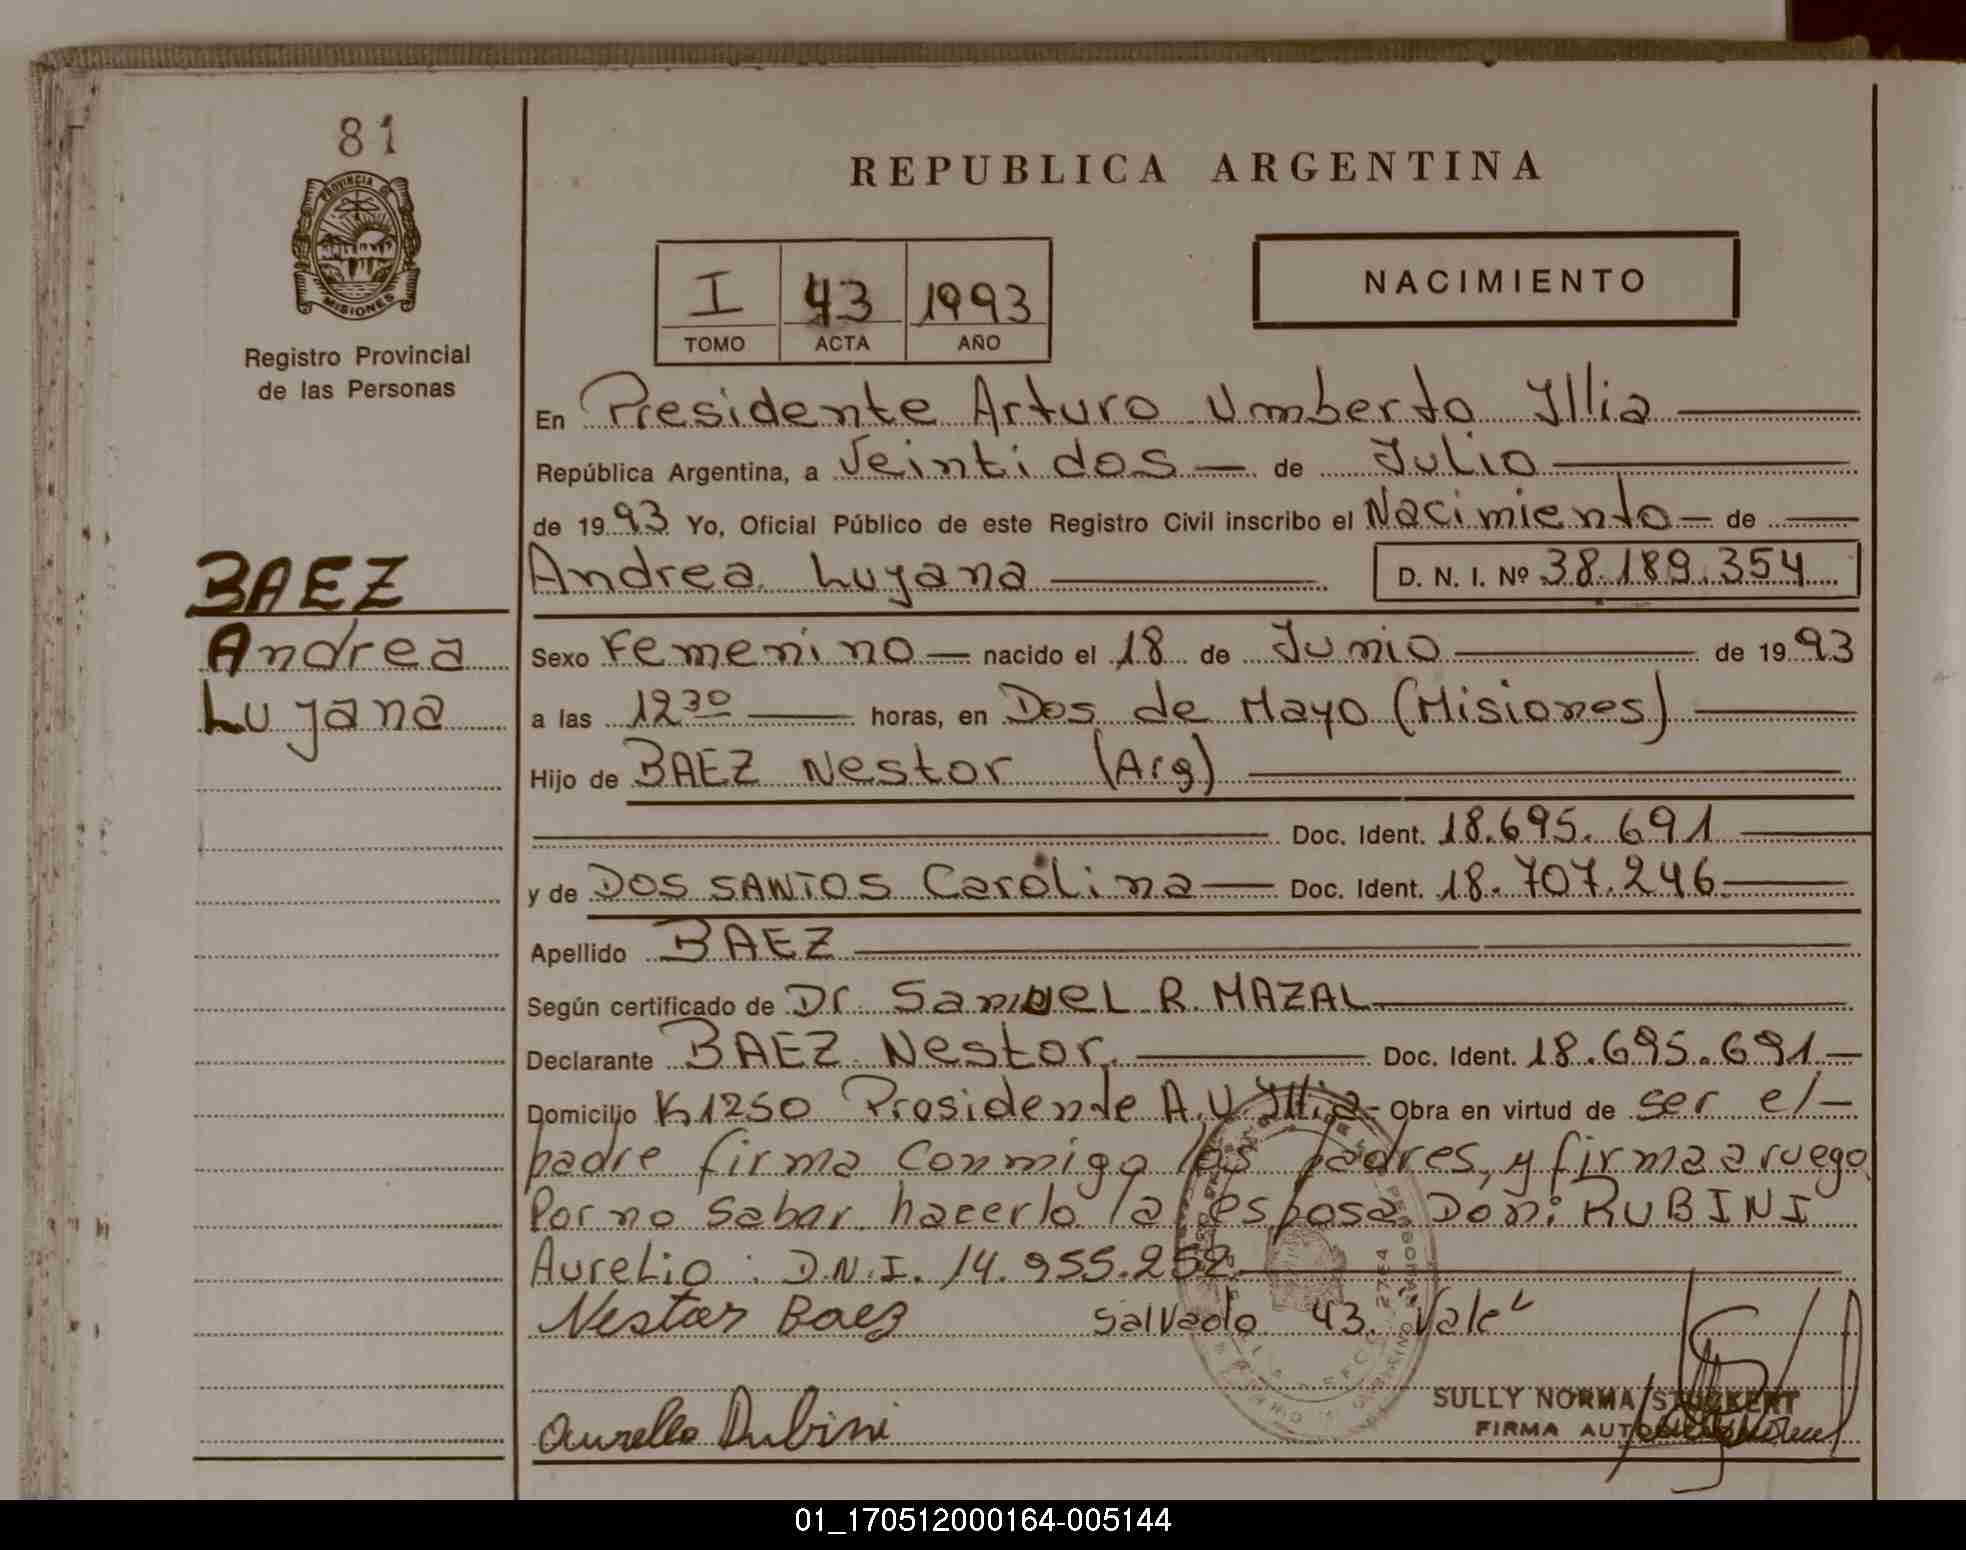 81
PROVINCIA DE
MISIONES
Registro Provincial
de las Personas
BAEZ
Andrea
Luyana
REPUBLICA ARGENTINA
I 43 1993
TOMO ACTA AÑO
NACIMIENTO
En Presidente Arturo Umberto Illia
República Argentina, a Veintidos de Julio
de 1993 Yo, Oficial Público de este Registro Civil inscribo el Nacimiento de
Andrea Luyana D. N. I. Nº 38.189.354
Sexo Femenino nacido el 18 de Junio de 1993
a las 12 30 horas, en Dos de Mayo (Misiones)
Hijo de BAEZ Nestor (Arg)
Doc. Ident. 18.695.691
y de DOS SANTOS Carolina Doc. Ident. 18.707.246
Apellido BAEZ
Según certificado de Dr. Samuel R. MAZAL
Declarante BAEZ Nestor. Doc. Ident. 18.695.691
Domicilio K,1250 Prosidente A.U.Illia Obra en virtud de ser el
padre firma conmigo los padres, y firma a ruego
Por no Sabar hacerlo la esposa Don: RUBINI
Aurelio : D.N.I. 14.955.252
Nestor Baez Salvado 43. Vale
Aurelio Rubini
SULLY NORMA STUCKERT
FIRMA
01_170512000164-005144